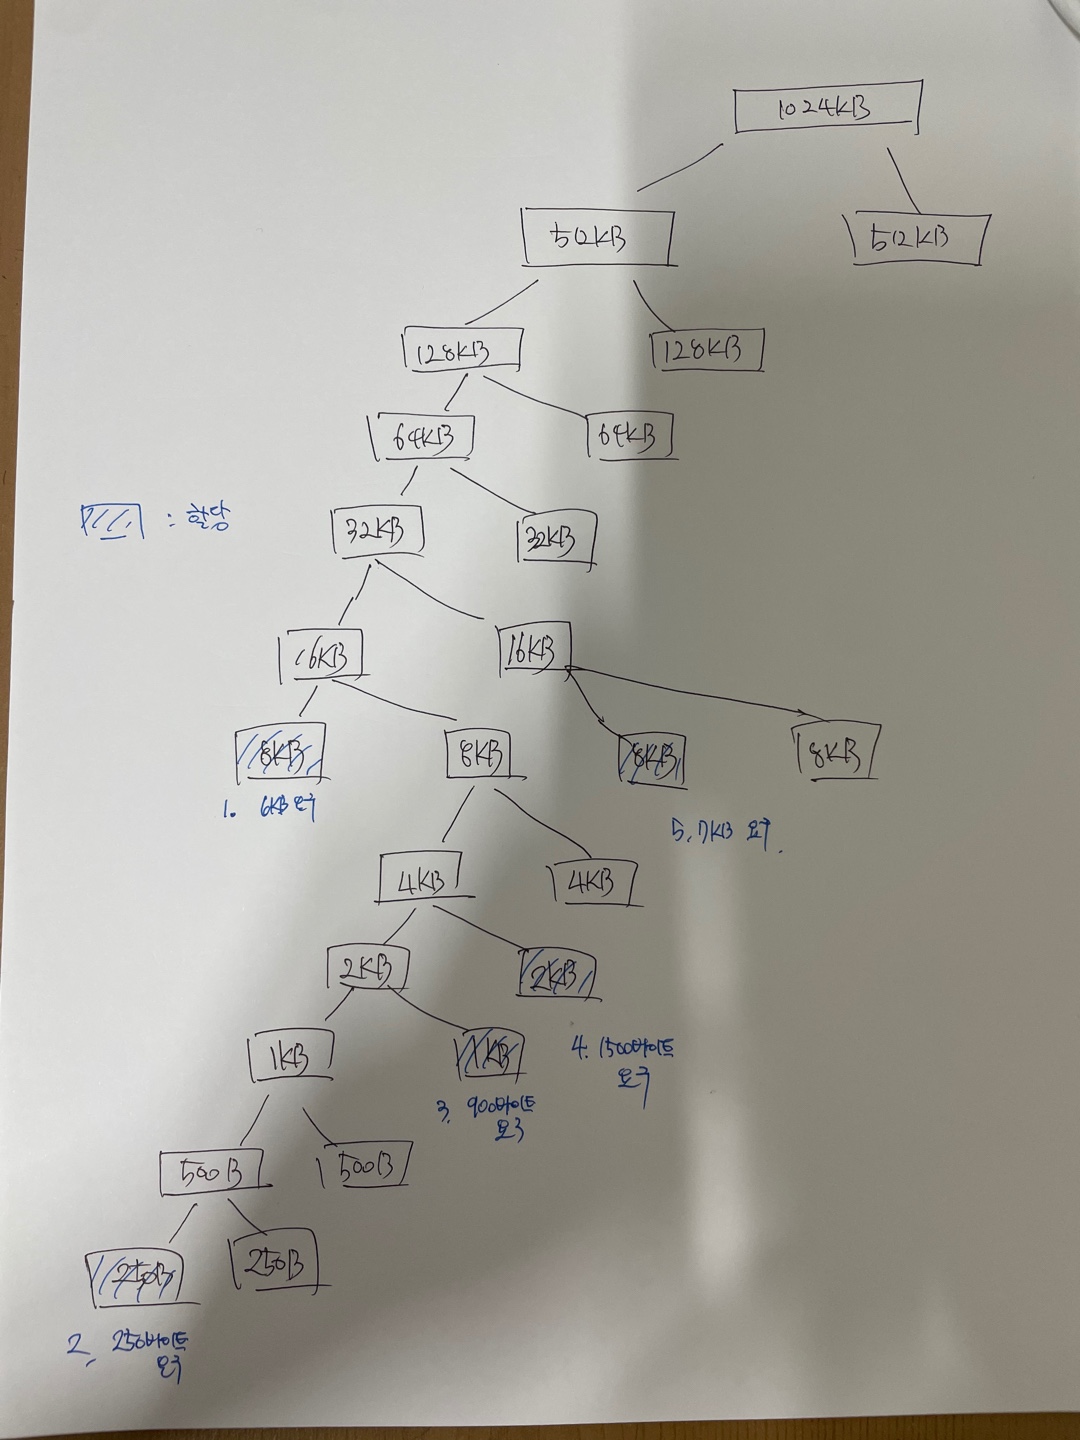 1024KB
512KB
512KB
128KB
128KB
64KB
64KB
: 할당
32KB
32KB
16KB
16KB
8KB
8KB
8KB
8KB
1. 6KB 요구
5. 7KB 요구.
4KB
4KB
2KB
2KB
1KB
1KB
4. 1500바이트
요구
3. 900바이트
요구
500B
500B
250B
250B
2. 250바이트
요구